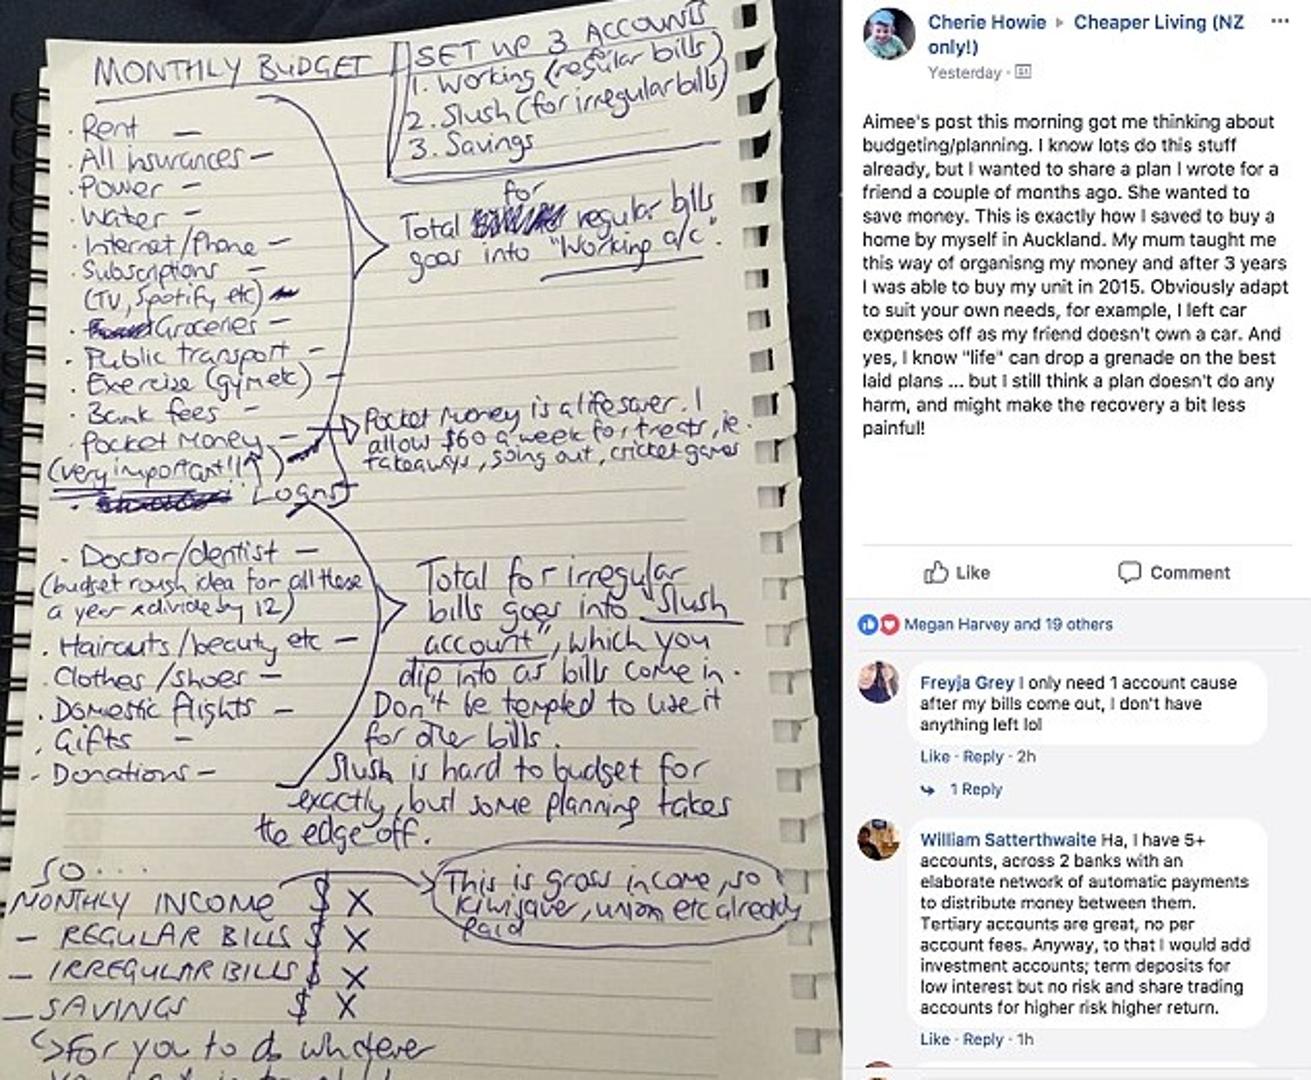 MONTHLY BUDGET
SET UP 3 ACCOUNTS
1. Working (regular bills)
2. Slush (for irregular bills)
3. Savings
· Rent —
· All insurances —
· Power —
· Water —
· Internet/Phone —
· Subscriptions —
(TV, Spotify, etc)
· Groceries —
· Public transport —
· Exercise (gym etc) —
· Bank fees —
· Pocket Money —
(very important!!↑)
· Loans
for
Total regular bills
goes into "Working a/c".
Pocket Money is a lifesaver. I
allow $60 a week for treats, ie.
takeaways, going out, cricket games
· Doctor/dentist —
(budget rough idea for all these
a year & divide by 12)
· Haircuts/beauty etc —
· Clothes/shoes —
· Domestic flights —
· Gifts —
· Donations —
Total for irregular
bills goes into "Slush
account", which you
dip into as bills come in.
Don't be tempted to use it
for other bills.
Slush is hard to budget for
exactly, but some planning takes
the edge off.
SO....
MONTHLY INCOME $ X
— REGULAR BILLS $ X
— IRREGULAR BILLS $ X
— SAVINGS $ X
This is gross income, so
Kiwisaver, union etc already
paid
↳ For you to do whatever
Cherie Howie ▸ Cheaper Living (NZ
only!)
Yesterday ·
Aimee's post this morning got me thinking about
budgeting/planning. I know lots do this stuff
already, but I wanted to share a plan I wrote for a
friend a couple of months ago. She wanted to
save money. This is exactly how I saved to buy a
home by myself in Auckland. My mum taught me
this way of organisng my money and after 3 years
I was able to buy my unit in 2015. Obviously adapt
to suit your own needs, for example, I left car
expenses off as my friend doesn't own a car. And
yes, I know "life" can drop a grenade on the best
laid plans ... but I still think a plan doesn't do any
harm, and might make the recovery a bit less
painful!
Like
Comment
Megan Harvey and 19 others
Freyja Grey I only need 1 account cause
after my bills come out, I don't have
anything left lol
Like · Reply · 2h
1 Reply
William Satterthwaite Ha, I have 5+
accounts, across 2 banks with an
elaborate network of automatic payments
to distribute money between them.
Tertiary accounts are great, no per
account fees. Anyway, to that I would add
investment accounts; term deposits for
low interest but no risk and share trading
accounts for higher risk higher return.
Like · Reply · 1h